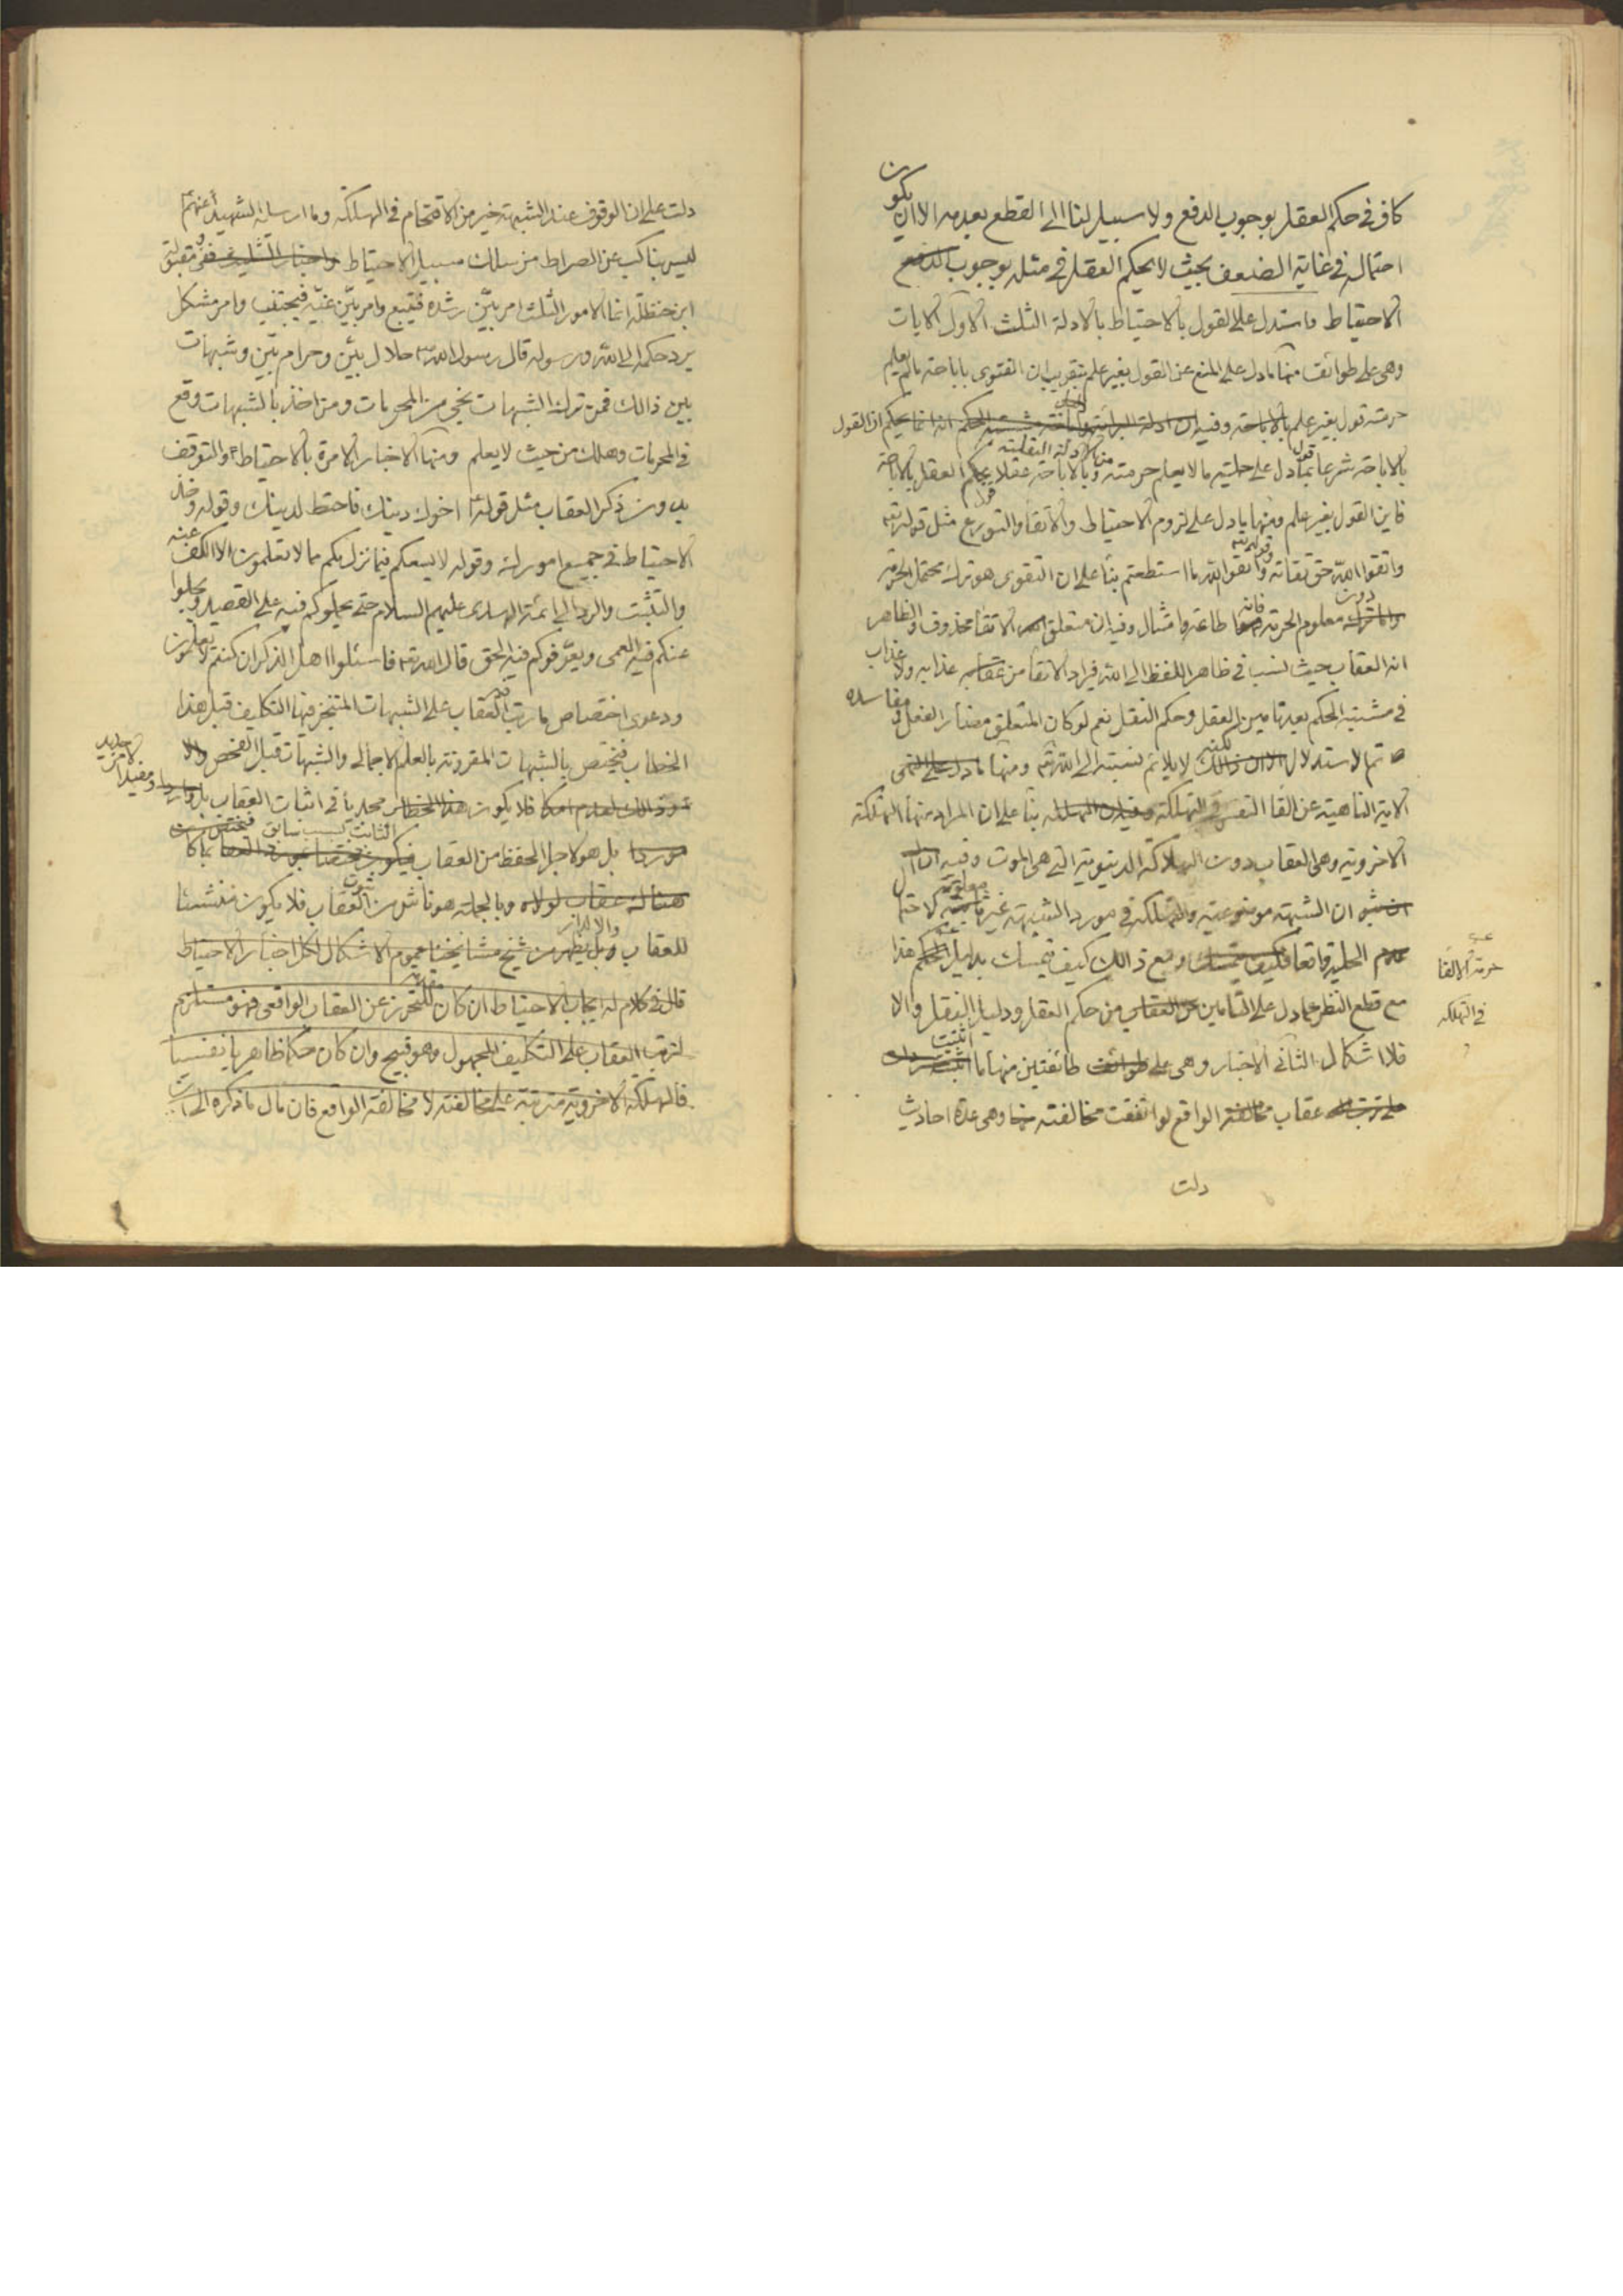 كاف في حكم العقل بوجوب الدفع ولا سبيل لنا الى القطع بعدمه الا ان يكون
احتماله في غاية الضعف بحيث لا يحكم العقل في مثله بوجوب الدفع
الاحتياط واستدل على القول بالاحتياط بالادلة الثلث الاول الايات
وهى على طوائف منها ما دل على المنع عن القول بغير علم بتقريب ان الفتوى باباحته ما لم يعلم
حرمته قول بغير علم بالاباحته وفيه ان ادلة البرائة الحكم انه انما يحكم ان القول
بالاباحته شرعا بما دل على حلية ما لا يعلم حرمته من الادلة النقلية وبالاباحته عقلا بحكم العقل بالاباحة
فاين القول بغير علم ومنها ما دل على لزوم الاحتياط والاتقاء والتورع مثل قوله تع
واتقوا الله حق تقاته وقوله تع واتقوا الله ما استطعتم بناء على ان التقوى هو ترك محتمل الحرمة
دون معلوم الحرمة فانه اطاعته وامتثال وفيه ان متعلق الاتقاء محذوف والظاهر
انه العقاب حيث نسب في ظاهر اللفظ الى الله فيراد الاتقاء من عذابه ولا عذاب
في مشتبه الحكم بعد تامين العقل وحكم النقل نعم لو كان المتعلق مضار الفعل ومفاسده
تم الاستدلال لكنه لا يلائم نسبته الى الله تع ومنها ما دل على النهى
الاية الناهية عن القاء النفس في التهلكة بناء على ان المراد منها التهلكة
الاخروية وهى العقاب دون الهلاكة الدنيوية التى هى الموت وفيه
ان الشبهة موضوعية والتهلكة في مورد الشبهة غير معلومة لاحتمال
عدم الحلية واقعا ومع ذالك كيف يتمسك بدليل الحكم هذا
مع قطع النظر عما دل على التامين من حكم العقل ودليل النقل والا
فلا اشكال الثاني الاخبار وهى على طائفتين منها ما اثبتت
عقاب مخالفة الواقع لو اتفقت مخالفته وهى عدة احاديث
حرمة الالقا
في التهلكه
دلت
دلت على ان الوقوف عند الشبهة خير من الاقتحام في الهلكة وما ارسله الشهيد عنهم
ليس بناكب عن الصراط من سلك سبيل الاحتياط واخبار التثليث ففى مقبولة
ابن حنظلة انما الامور الثلث امر بيّن رشده فيتبع وامر بيّن غيّه فيجتنب وامر مشكل
يرد حكمه الى الله ورسوله قال رسول الله ص حلال بيّن وحرام بيّن وشبهات
بين ذالك فمن ترك الشبهات نجى من المحرمات ومن اخذ بالشبهات وقع
في المحرمات وهلك من حيث لا يعلم ومنها الاخبار الامرة بالاحتياط والتوقف
بدون ذكر العقاب مثل قوله ع اخوك دينك فاحتط لدينك وقوله وخذ
الاحتياط في جميع امورك وقوله لا يسعكم فيما نزل بكم مما لا تعلمون الا الكف عنه
والتثبت والرد الى ائمة الهدى عليهم السلام حتى يحملوكم فيه على القصد ويجلوا
عنكم فيه العمى ويعرّفوكم فيه الحق قال الله تع فاسئلوا اهل الذكر ان كنتم لا تعلمون
ودعوى اختصاص ما رتب العقاب على الشبهات المتنجز فيها التكليف قبل هذا
الخطاب فيختص بالشبهات المقرونة بالعلم الاجمالى والشبهات قبل الفحص
فلا يكون هذا الخطاب مجديا في اثبات العقاب بل
بل هو لاجل الحفظ من العقاب الثابت بسبب سابق فيختص بما كان
هناك عقاب لولاه وبالجملة هو ناش من ثبوت العقاب فلا يكون منشئا
للعقاب من شيخ مشايخنا عموم الاشكال لكل اخبار الاحتياط
قال في كلام له ايجاب الاحتياط ان كان مقدمة للتحرز عن العقاب الواقعى فهو مستلزم
لترتب العقاب على التكليف المجهول وهو قبيح وان كان حكما ظاهريا نفسيا
فالهلكة الاخروية مترتبة على مخالفته لا مخالفة الواقع فان مال ما ذكره الى ان